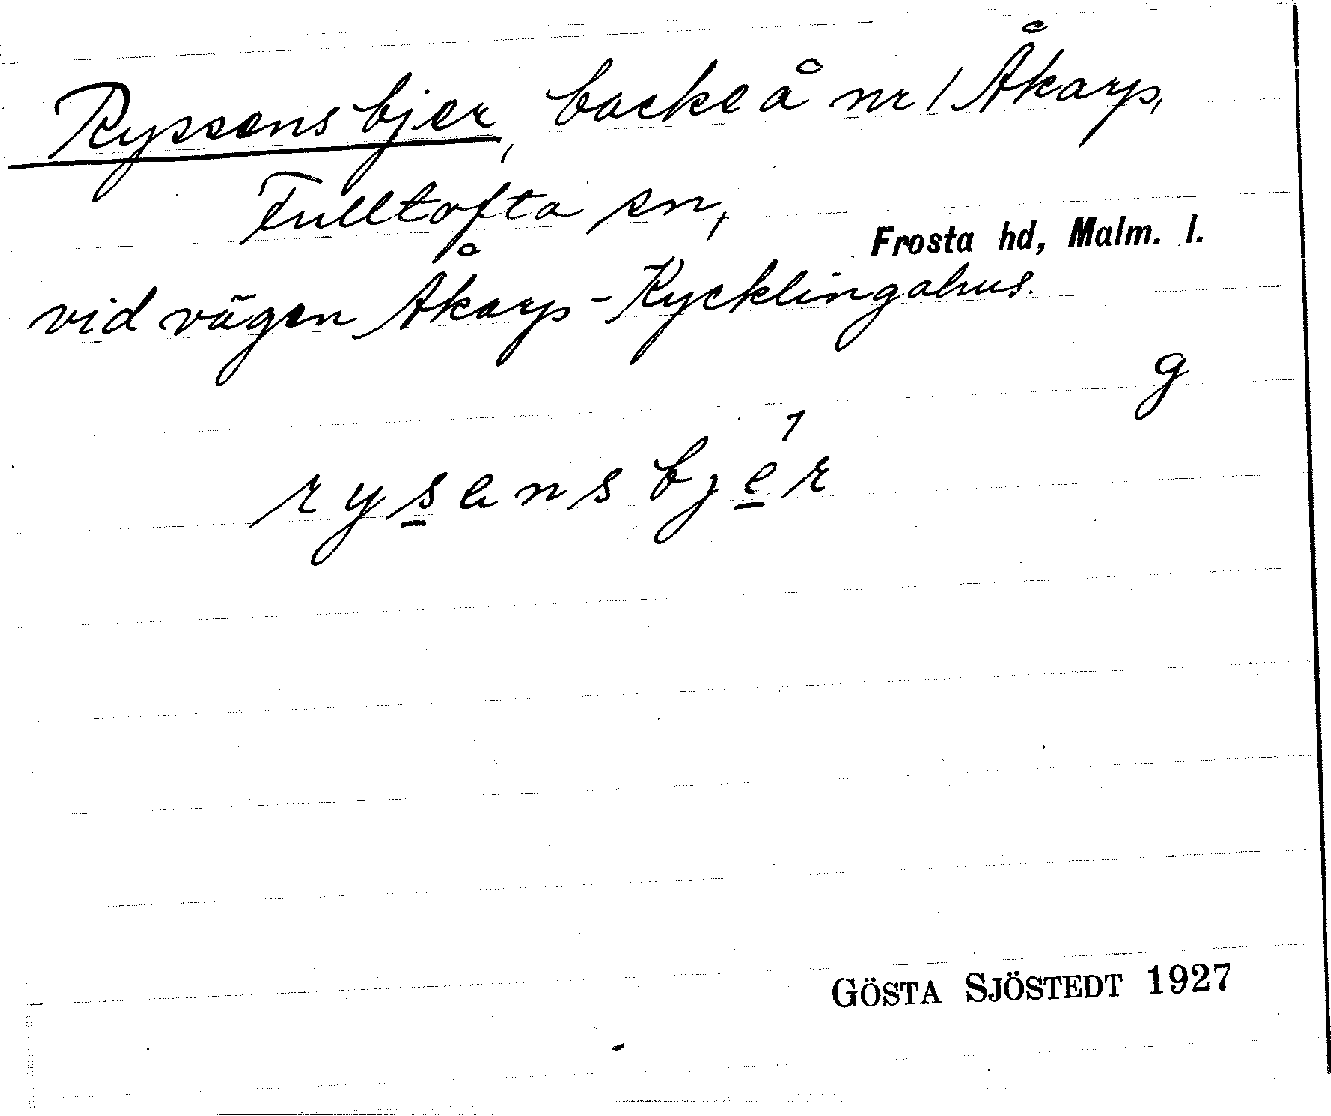 Ryssensbjer, backe å nr 1 Åkarp,
Fulltofta sn,
Frosta hd, Malm. l.
vid vägen Åkarp-Kycklingahus.
g
rysensbjer
GÖSTA SJÖSTEDT 1927